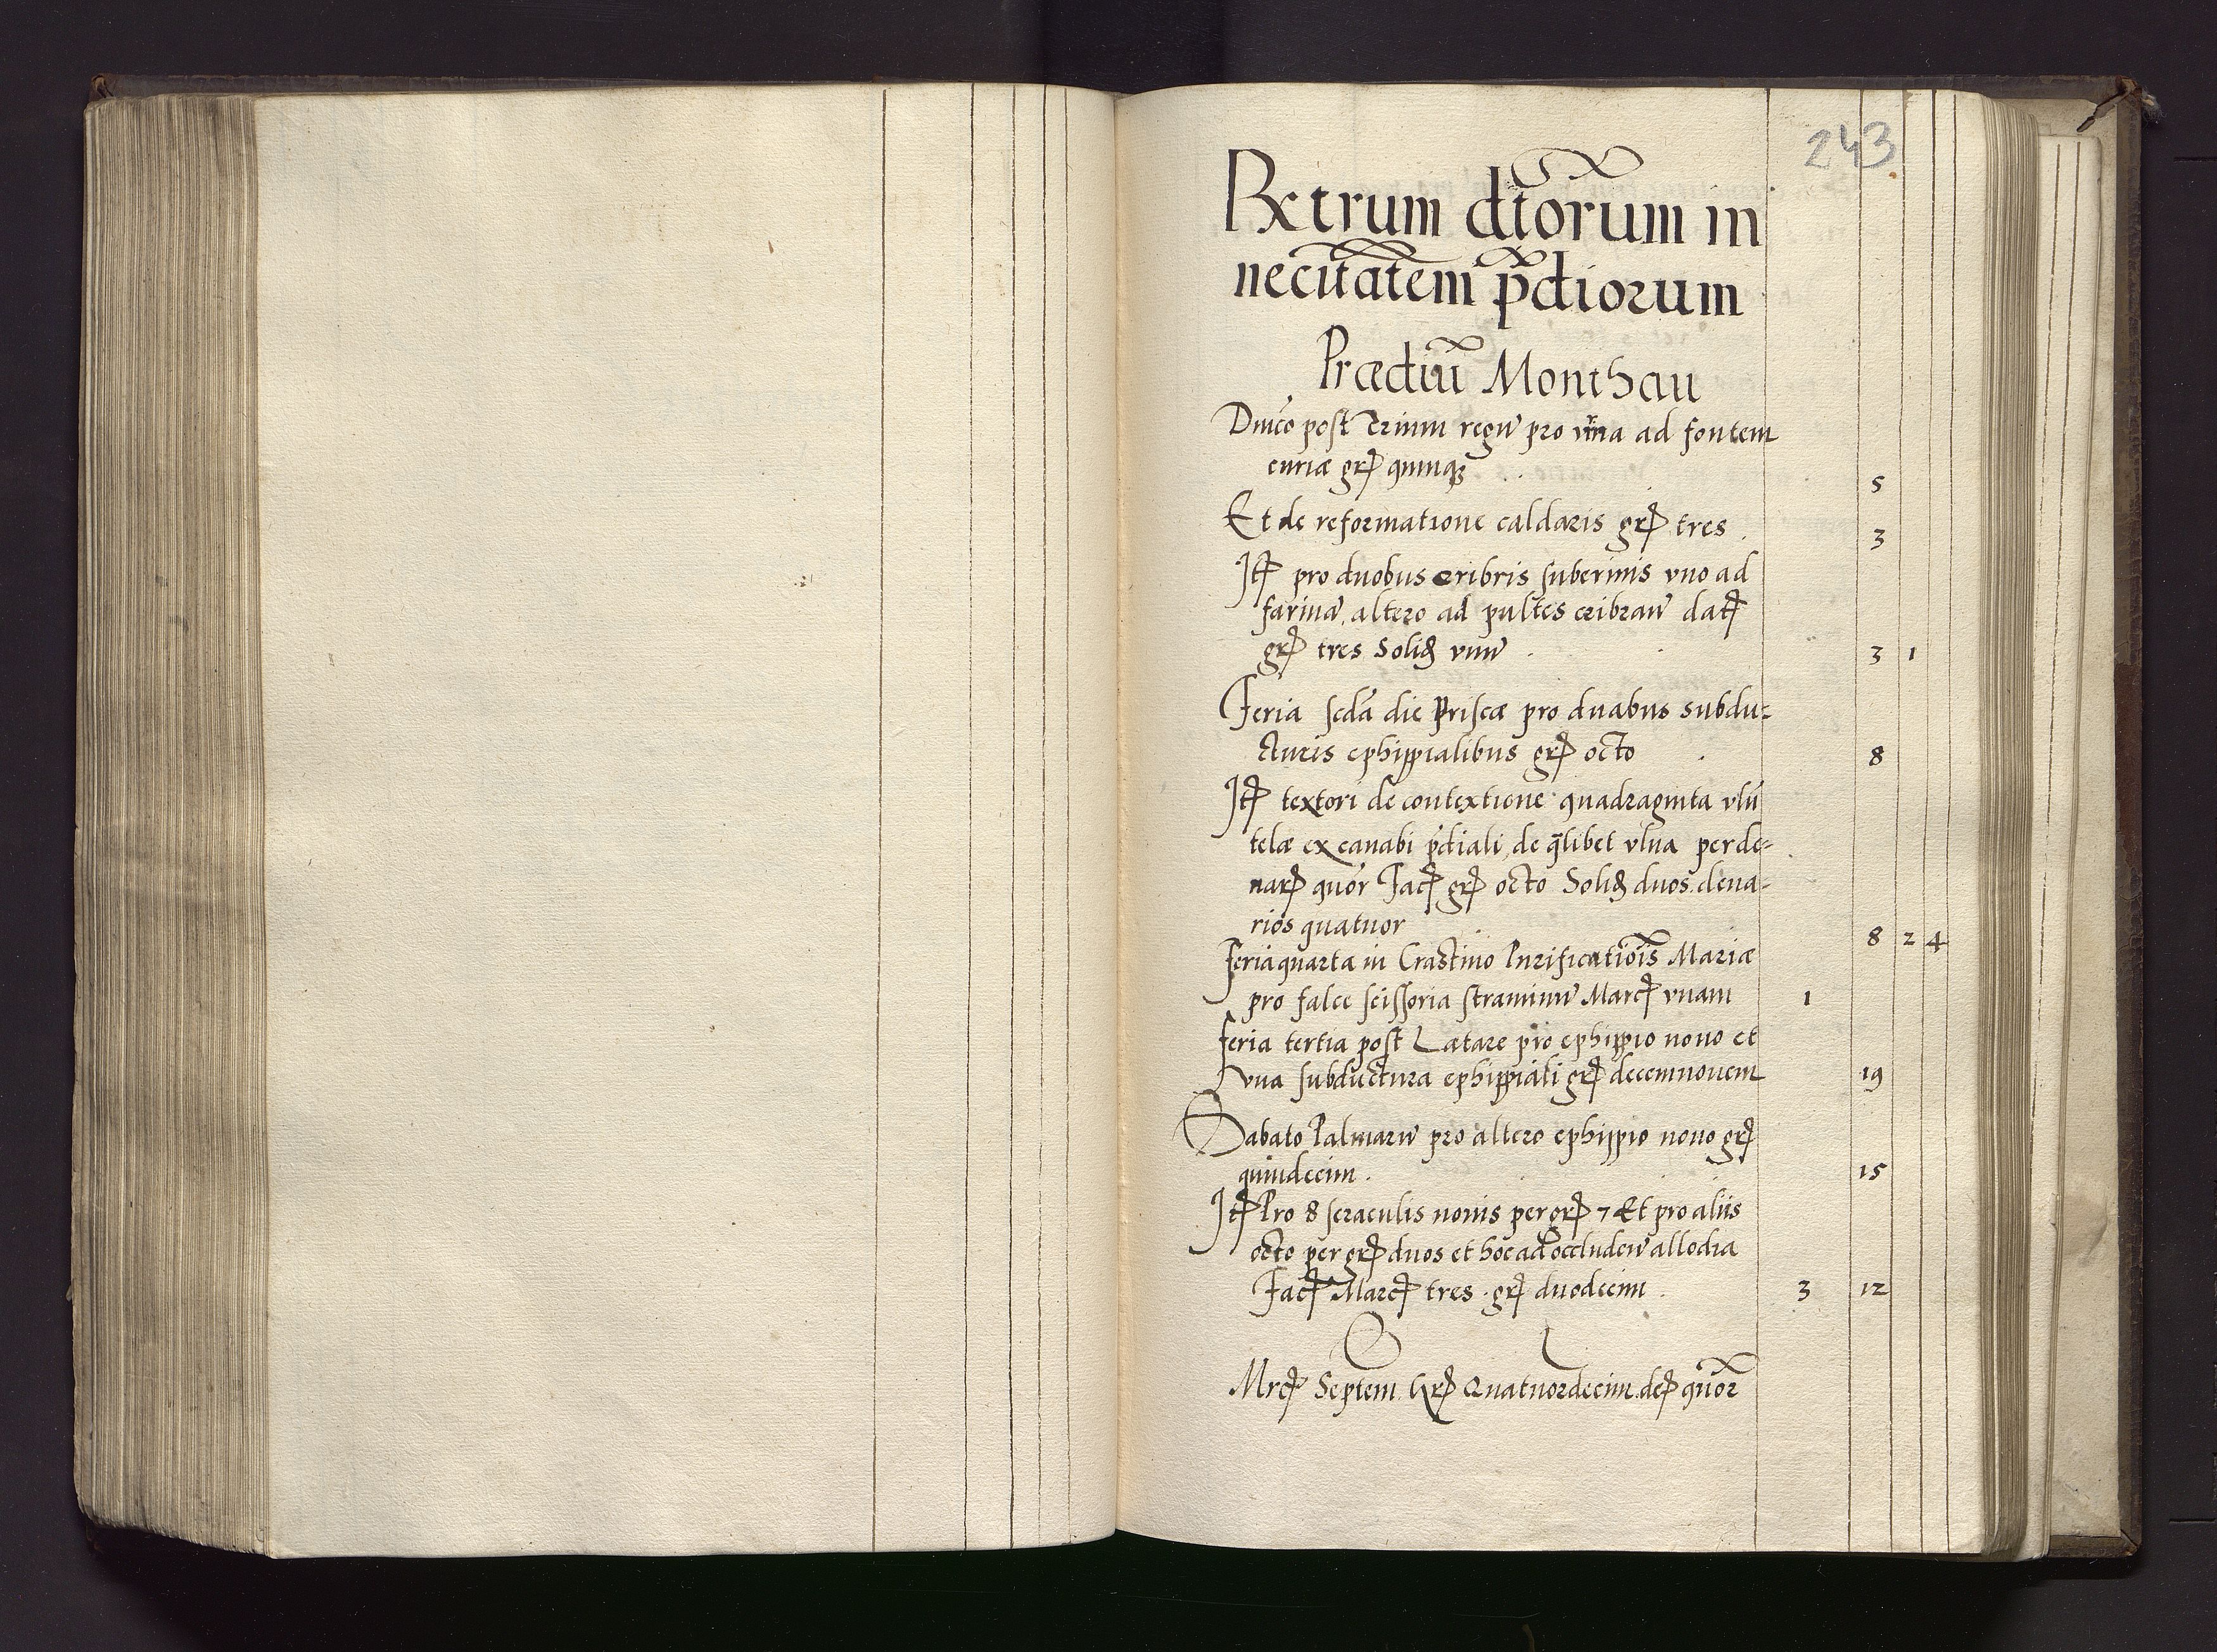 243
Retrum dtorum in
necītatem p̄diorum
Prædiū Monthau
Dnīco post Trium regū pro vrna ad fontem
curiæ gr quinqʒ 5
Et de reformatione caldaris gr tres 3
It pro duobus cribris suberinis vno ad
farinā, altero ad pultes cribran̄ dat
gr tres Solid vnū 3 1
Feria scda die Priscæ pro duabus subdu=
cturis ephippialibus gr octo 8
It textori de contextione quadraginta vlnū
telæ ex canabi p̄diali, de q̄libet vlna per de=
nar quor Fac gr octo Solid duos dena=
rios quatuor 8 2 4
Feria quarta in Crastino Purificatiois Mariæ
pro falce scissoria straminū Marc vnam 1
Feria tertia post Lætare pro ephippio nouo et
vna subductura ephippiali gr decemnouem 19
Sabato Palmarū pro altero ephippio nouo gr
quindecim . 15
It Pro 8 seraculis nouis per gr 7 Et pro aliis
octo per gr duos et hoc ad occluden̄ allodia
Fac Marc tres gr duodecim . 3 12
S L
Mrc Septem Gr Quatuordecim de quor